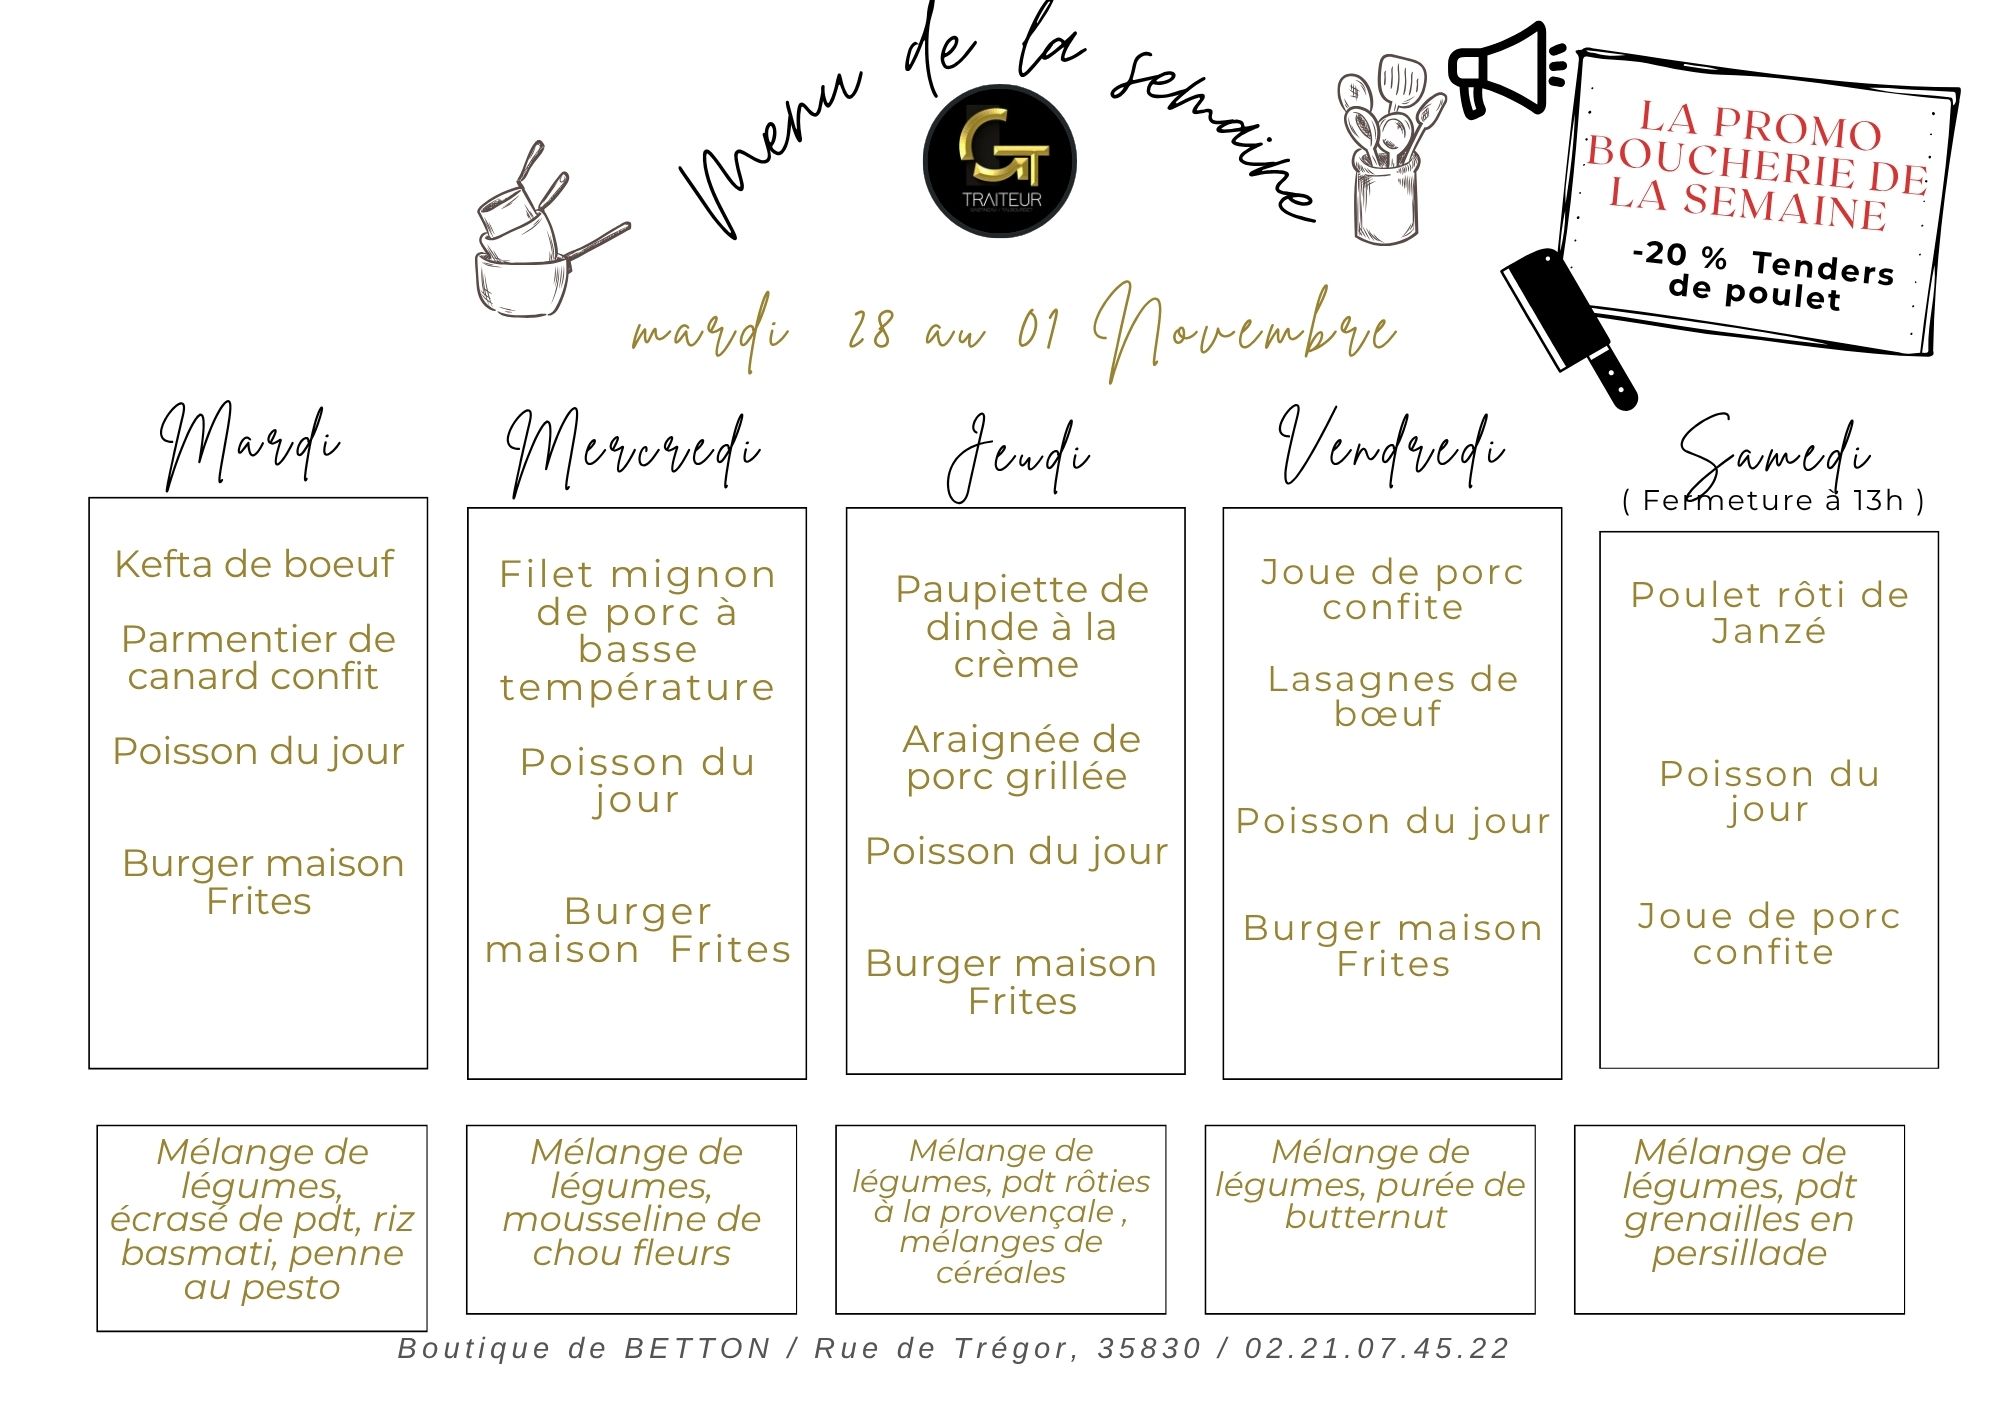 Menu de la semaine
GT
TRAITEUR
LA PROMO
BOUCHERIE DE
LA SEMAINE
-20 % Tenders
de poulet
mardi 28 au 01 Novembre
Mardi
Kefta de boeuf
Parmentier de
canard confit
Poisson du jour
Burger maison
Frites
Mélange de
légumes,
écrasé de pdt, riz
basmati, penne
au pesto
Mercredi
Filet mignon
de porc à
basse
température
Poisson du
jour
Burger
maison Frites
Mélange de
légumes,
mousseline de
chou fleurs
Jeudi
Paupiette de
dinde à la
crème
Araignée de
porc grillée
Poisson du jour
Burger maison
Frites
Mélange de
légumes, pdt rôties
à la provençale ,
mélanges de
céréales
Vendredi
Joue de porc
confite
Lasagnes de
bœuf
Poisson du jour
Burger maison
Frites
Mélange de
légumes, purée de
butternut
Samedi
( Fermeture à 13h )
Poulet rôti de
Janzé
Poisson du
jour
Joue de porc
confite
Mélange de
légumes, pdt
grenailles en
persillade
Boutique de BETTON / Rue de Trégor, 35830 / 02.21.07.45.22